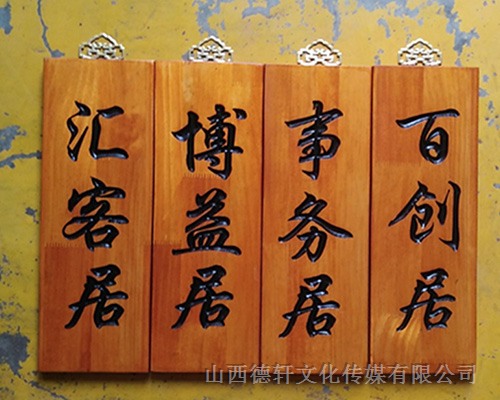 汇客居
博益居
事务居
百创居
山西德轩文化传媒有限公司